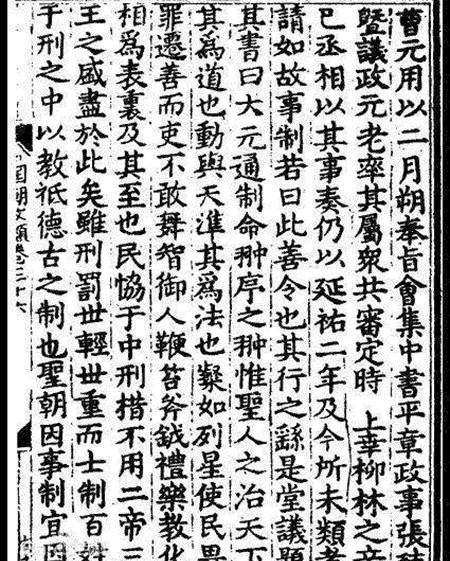 曹元用以二月朔奉旨會集中書平章政事張
暨議政元老率其屬衆共審定時 上幸柳林之辛
巳丞相以其事奏仍以延祐二年及今所未類者
請如故事制若曰此善令也其行之繇是堂議題
其書曰大元通制命翀序之翀惟聖人之治天下
其為道也動與天準其為法也粲如列星使民畏
罪遷善而吏不敢舞智御人鞭笞斧鉞禮樂教化
相為表裏及其至也民恊于中刑措不用二帝三
王之盛盡於此矣雖刑罰世輕世重而士制百姓
于刑之中以教祗德古之制也聖朝因事制宜因
國朝文類卷三十六